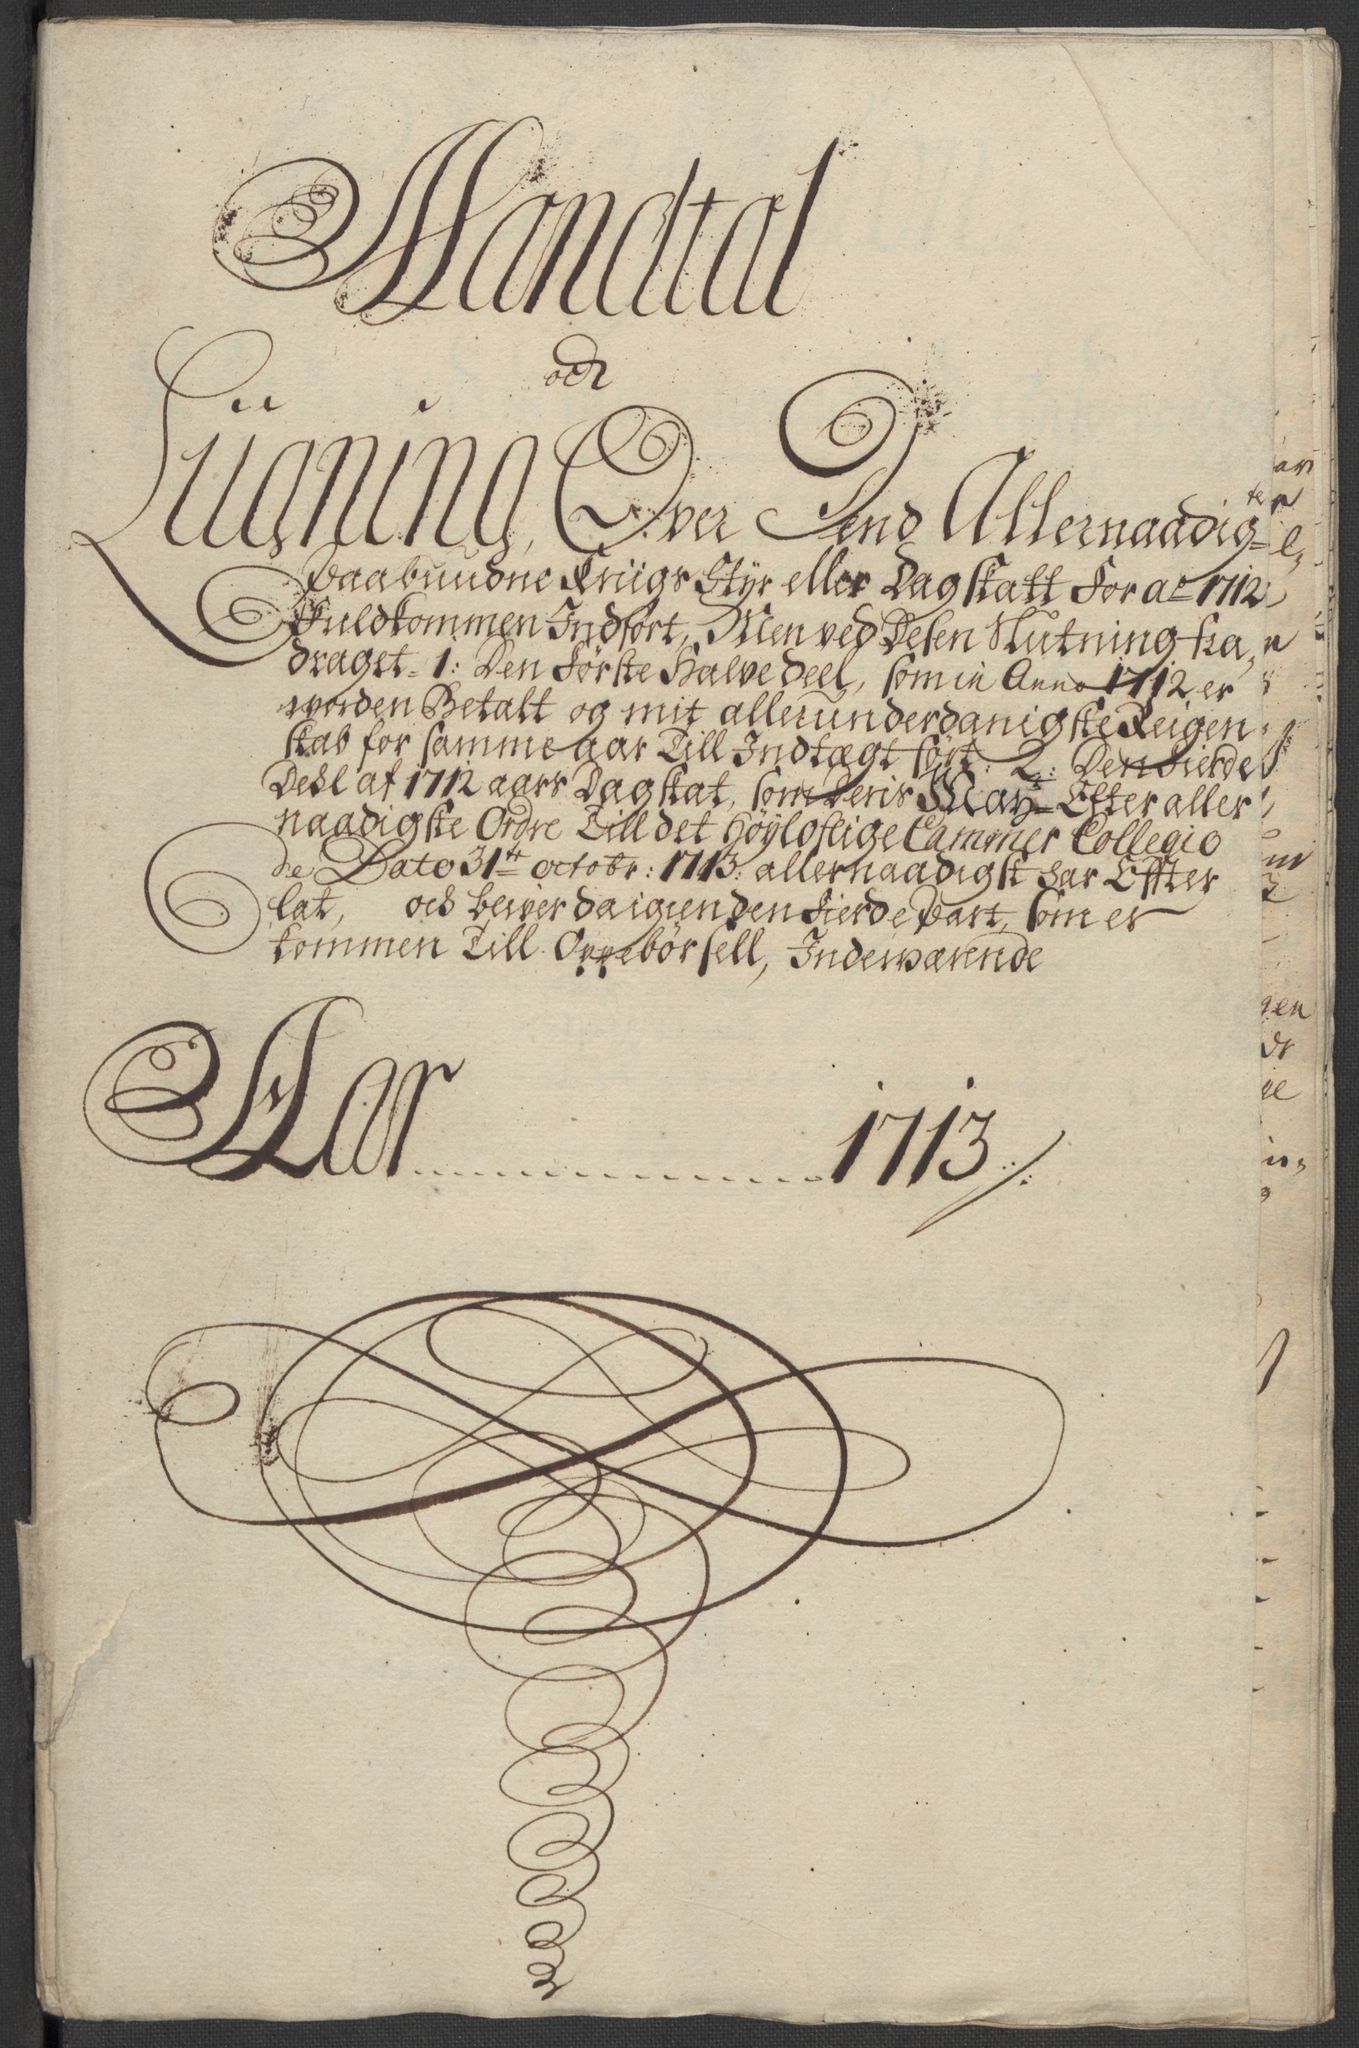 Mandtal
och
Liigning, Over Dend Allernaadigste
Paabuudne Kriigs Styr eller Dagskatt for ao 1712
Fuldkommen Indfört, Men ved Desen Slutning fra,
draget. 1: Den Förste Halve deel, som in Anno 1712 er
worden Betalt og mit allerunderdanigste Reigen
skab for samme aar Till Indtægt fört. 2: Den Fierde
Deel af 1712 aars Dagskat, som Deris Mayt Efter aller
naadigste Ordre Till det Höyloflige Cammer Collegio
de Dato 31te octobr: 1713: allernaadigst har Effter
lat, och bliver da igien den Fierde Part, som er
kommen Till Oppebörsell, Indeværende
Aar 1713